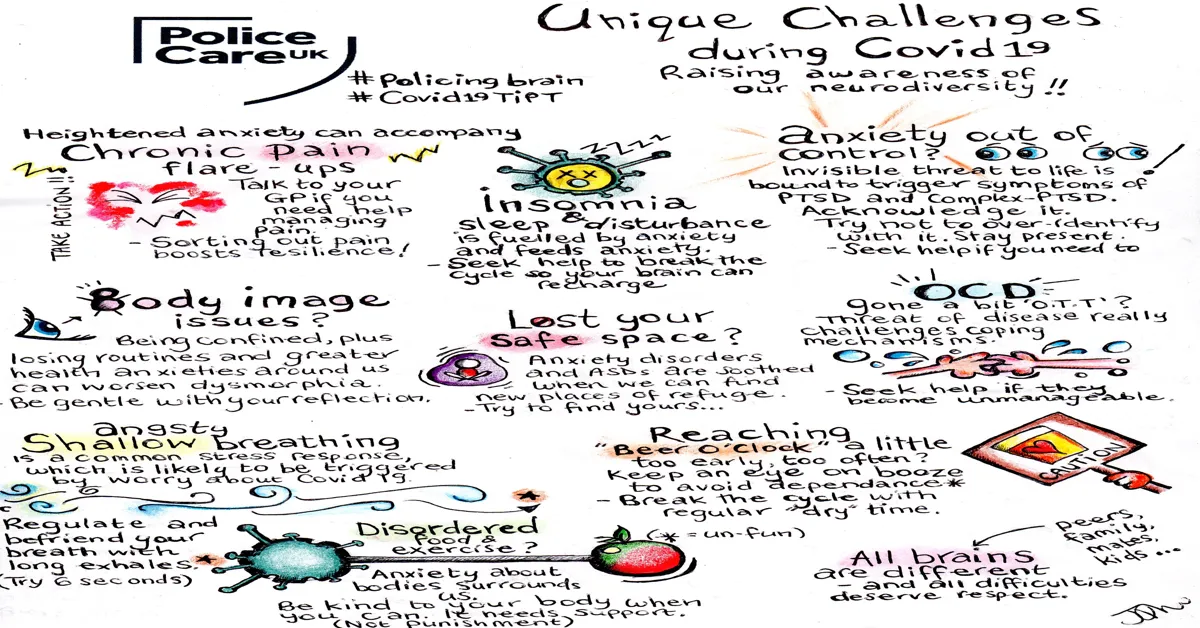 Police
Care UK
# Policing brain
# Covid19TiPT
Unique Challenges
during Covid 19
Raising awareness of
our neurodiversity !!
Heightened anxiety can accompany
Chronic Pain
flare-ups
TAKE ACTION!!
Talk to your
GP if you
need help
managing
pain.
- Sorting out pain
boosts resilience!
zzzz
Insomnia
&
sleep disturbance
is fuelled by anxiety
and feeds anxiety.
- Seek help to break the
cycle so your brain can
recharge
Anxiety out of
control?
Invisible threat to life is
bound to trigger symptoms of
PTSD and Complex-PTSD.
Acknowledge it.
Try not to over-identify
with it. Stay present.
- Seek help if you need to
Body image
issues?
Being confined, plus
losing routines and greater
health anxieties around us
can worsen dysmorphia.
- Be gentle with your reflection.
Lost your
Safe space?
Anxiety disorders
and ASDs are soothed
when we can find
new places of refuge.
- Try to find yours...
OCD
gone a bit 'O.T.T'?
Threat of disease really
challenges coping
mechanisms.
- Seek help if they
become unmanageable.
angsty
Shallow breathing
is a common stress response,
which is likely to be triggered
by worry about Covid 19.
Regulate and
befriend your
breath with
long exhales.
(Try 6 seconds)
*
*
Disordered
food &
exercise?
Anxiety about
bodies surrounds
us.
Be kind to your body when
you can. It needs support.
(Not punishment)
Reaching
"Beer O'Clock" a little
too early, too often?
Keep an eye on booze
to avoid dependance*
- Break the cycle with
regular "dry" time.
(* = un-fun)
CAUTION
peers,
family,
mates,
kids ...
All brains
are different
- and all difficulties
deserve respect.